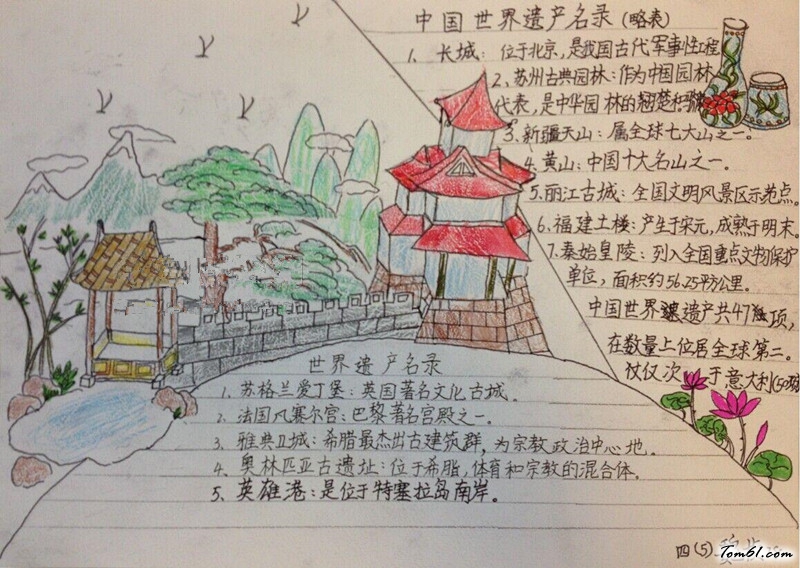 中国世界遗产名录(略表)
1、长城：位于北京，是我国古代军事性工程
2、苏州古典园林：作为中国园林
代表，是中华园林的翘楚和骄
3、新疆天山：属全球七大山之一。
4、黄山：中国十大名山之一。
5、丽江古城：全国文明风景区示范点。
6、福建土楼：产生于宋元，成熟于明末。
7、秦始皇陵：列入全国重点文物保护
单位，面积约56.25平方公里。
中国世界遗产共47项，
在数量上位居全球第二。
仅仅次于意大利(50项
世界遗产名录
1、苏格兰爱丁堡：英国著名文化古城.
2、法国凡赛尔宫：巴黎著名宫殿之一。
3、雅典卫城：希腊最杰出古建筑群，为宗教政治中心地.
4、奥林匹亚古遗址：位于希脂，体育和宗教的混合体。
5、英雄港：是位于特塞拉岛南岸。
四(5)
Tom61.com